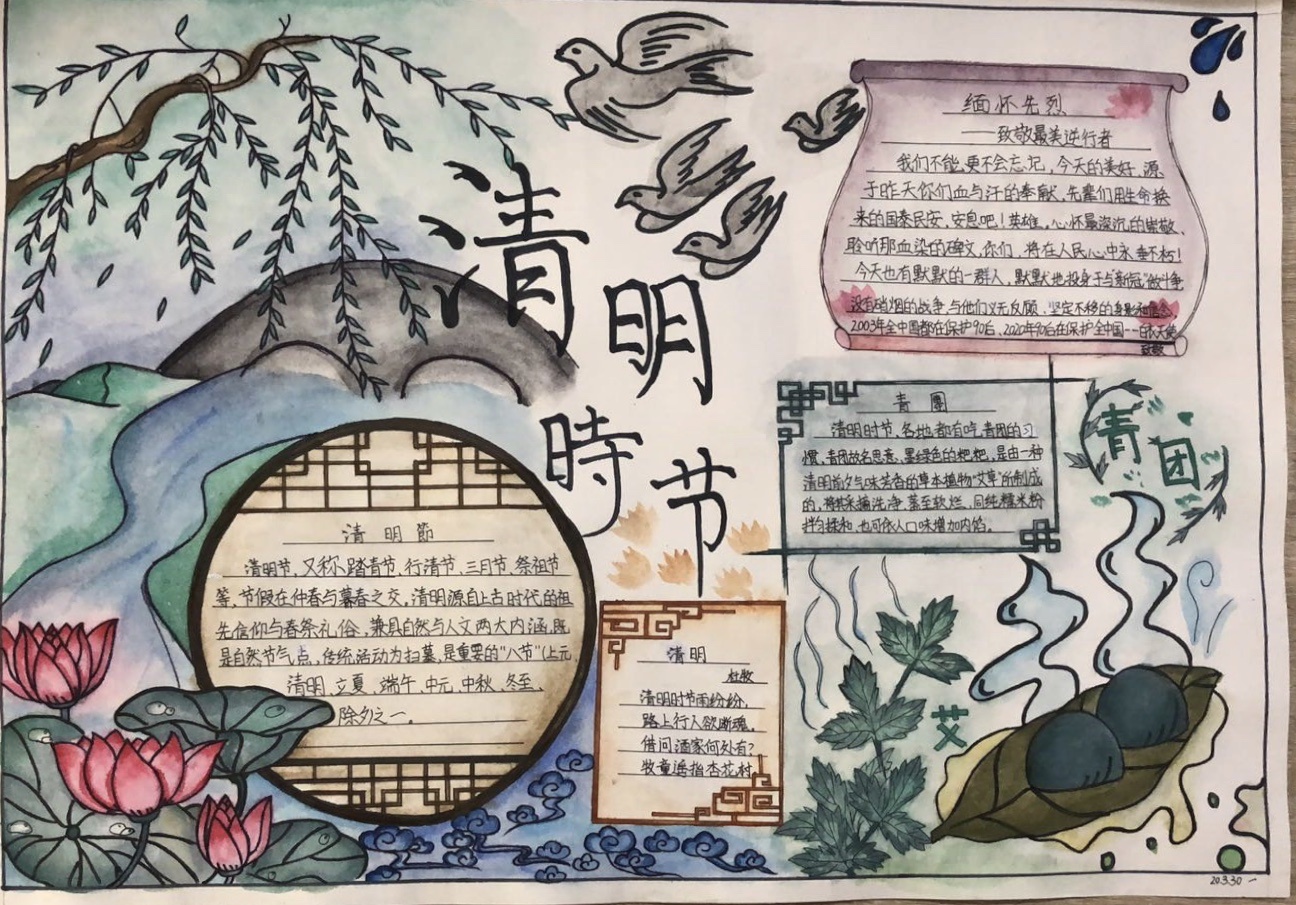 清明
時节
缅怀先烈
——致敬最美逆行者
我们不能,更不会忘记,今天的美好,源
于昨天你们血与汗的奉献,先辈们用生命换
来的国泰民安,安息吧!英雄,心怀最深沉的崇敬,
聆听那血染的碑文,你们,将在人民心中永垂不朽!
今天也有默默的一群人,默默地投身于与新冠"做斗争
没有硝烟的战争,与他们义无反顾、坚定不移的身影和信念,
2003年全中国都在保护90后,2020年90后在保护全中国--白衣天使
致敬
青團
清明时节,各地都有吃青团的习
惯,青团故名思意,墨绿色的粑粑,是由一种
清明前夕与味芳香的草本植物"艾草"所制成
的,将其采摘洗净,蒸至软烂,同纯糯米粉
拌匀揉和,也可依人口味增加内馅。
青团
清明節
清明节,又称踏青节、行清节、三月节、祭祖节
等,节假在仲春与暮春之交,清明源自上古时代的祖
先信仰与春祭礼俗,兼具自然与人文两大内涵,既
是自然节气点,传统活动为扫墓,是重要的"八节"(上元、
清明、立夏、端午、中元、中秋、冬至、
除夕之一。
清明
杜牧
清明时节雨纷纷,
路上行人欲断魂。
借问酒家何处有?
牧童遥指杏花村
艾
20.3.30